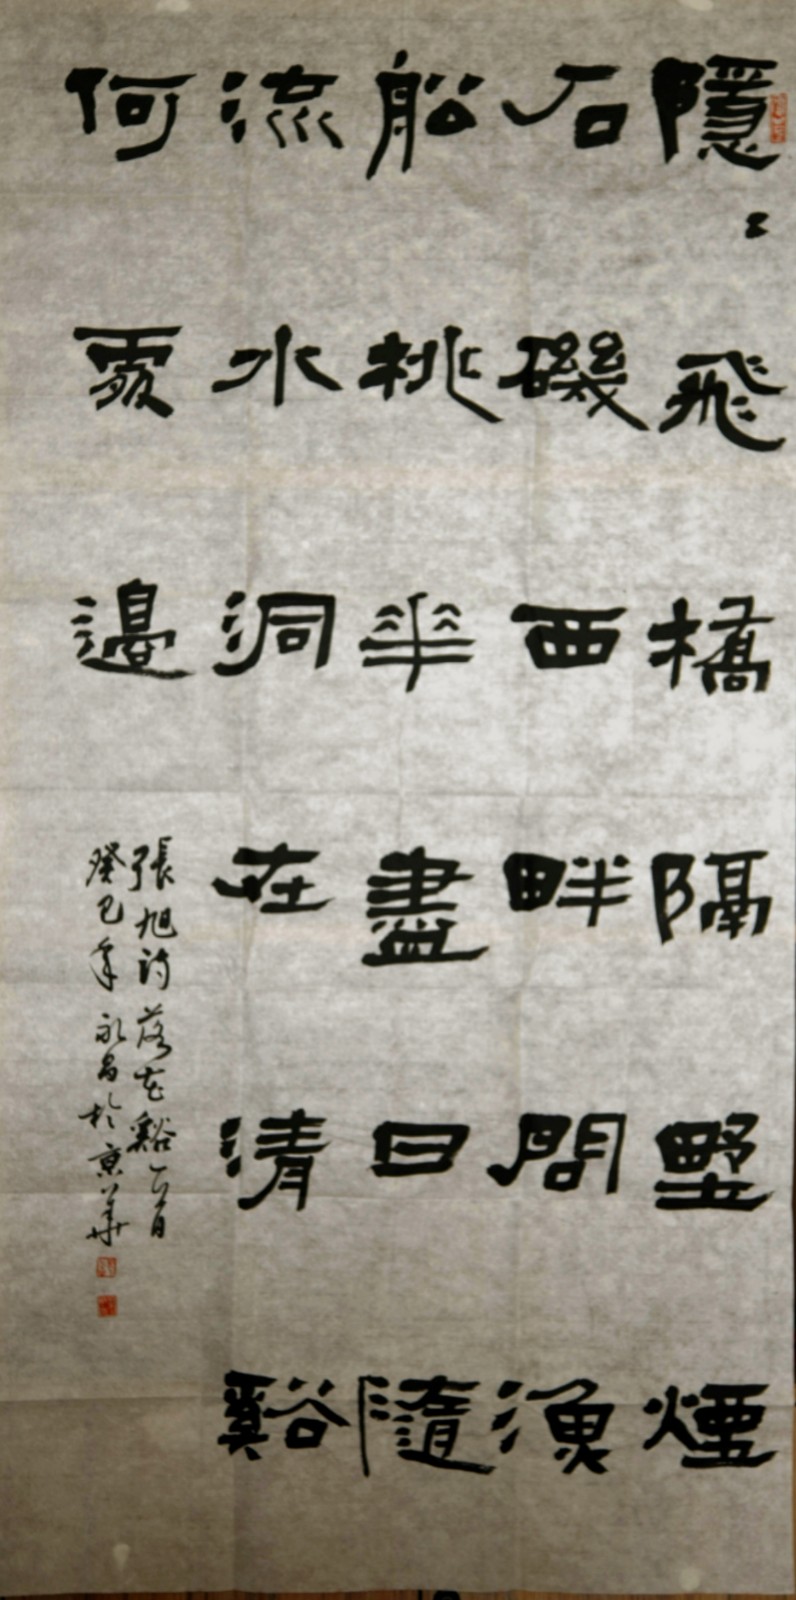 隱〻飛橋隔野煙
石磯西畔問漁
船桃華盡日隨
流水洞在清谿
何處邊
張旭詩落花谿一首
癸巳年永昌於京華